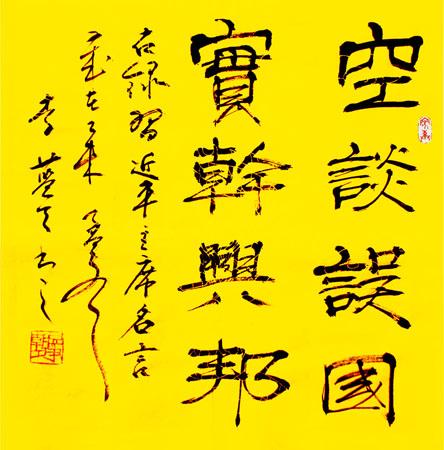 空談誤國
實幹興邦
右録習近平主席名言
歲在乙未
李